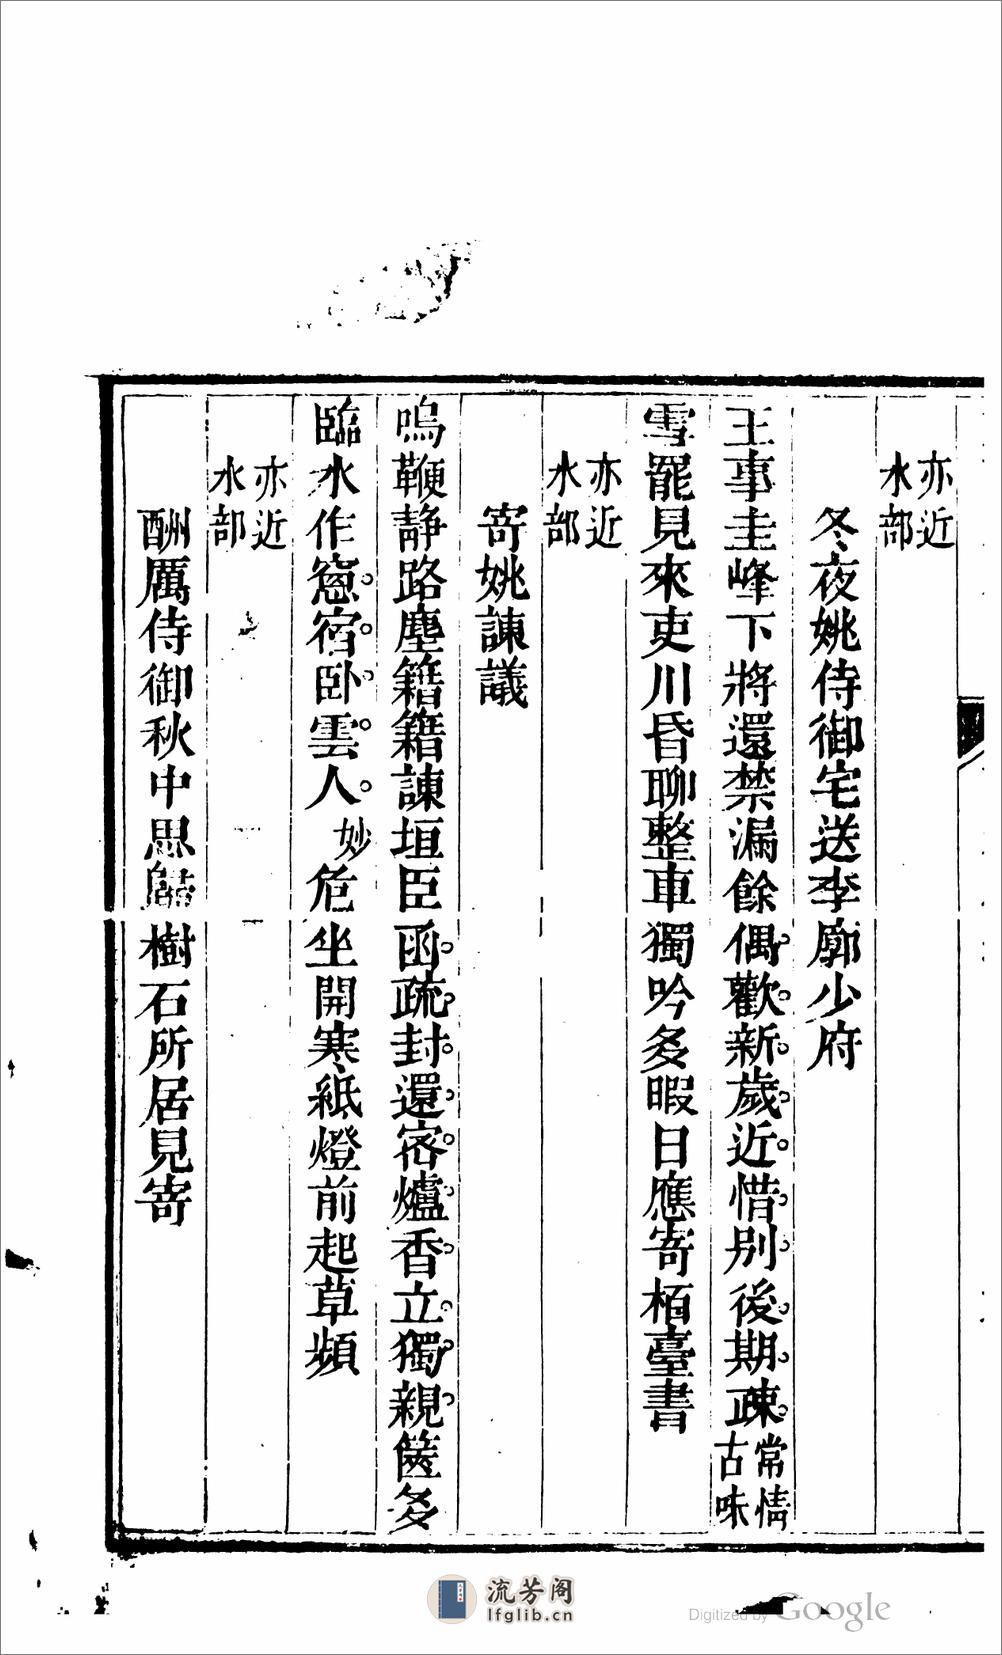 亦近
水部
冬夜姚侍御宅送李廓少府
王事圭峰下將還禁漏餘偶歡新歲近惜別後期疎常情古味
雪罷見來吏川昏聊整車獨吟多暇日應寄栢臺書
亦近
水部
寄姚諫議
鳴鞭靜路塵籍籍諫垣臣函疏封還密爐香立獨親篋多
臨水作窓宿卧雲人妙危坐開寒紙燈前起草頻
亦近
水部
酬厲侍御秋中思歸樹石所居見寄
流芳阁
lfglib.cn
Digitized by Google